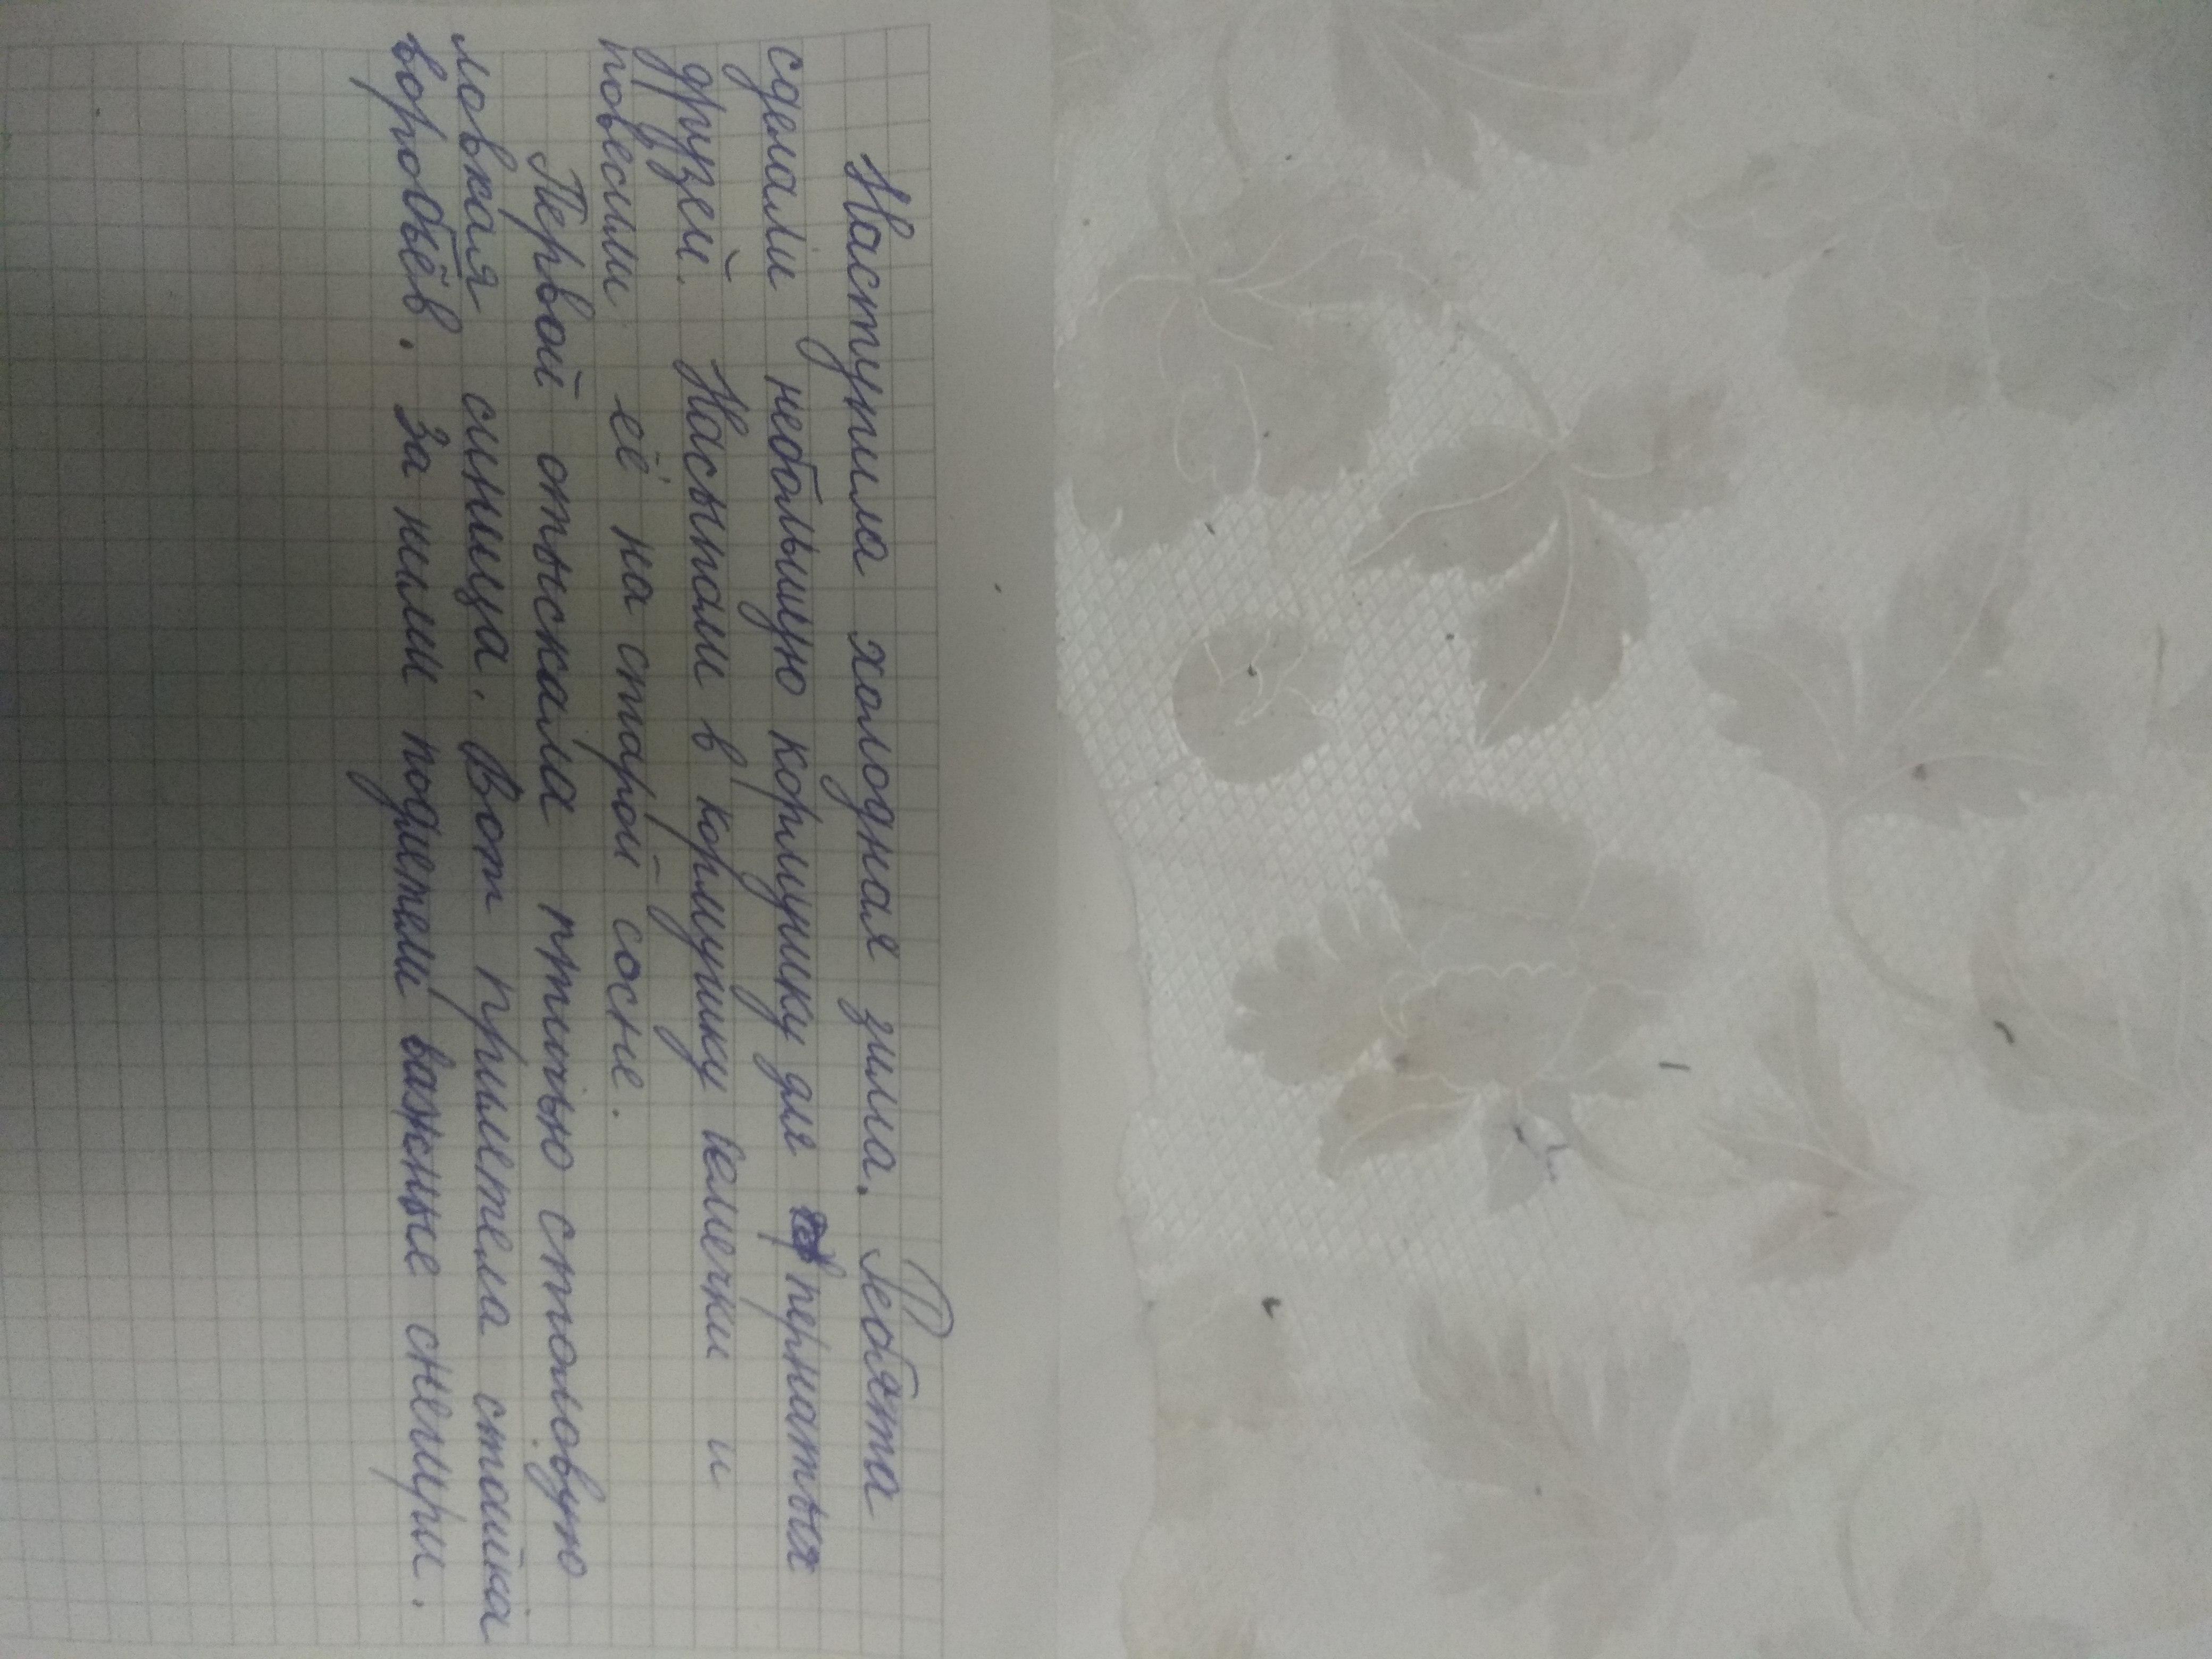 Наступила холодная зима. Ребята
сделали небольшую кормушку для пернатых
друзей. Насыпали в кормушку семечки и
повесили её на старой сосне.
Первой отыскала птичью столовую
ловкая синица. Вот прилетела стайка
воробьёв. За ними подлетели важные снегири.